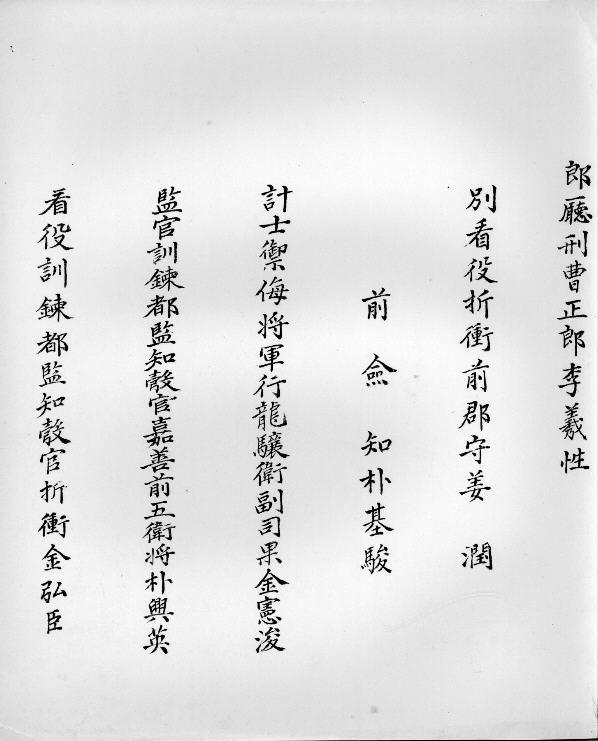 郎廳刑曹正郎李羲性
別看役折衝前郡守姜　潤
前　僉　知朴基駿
計士禦侮將軍行龍驤衛副司果金憲浚
監官訓鍊都監知彀官嘉善前五衛將朴興英
看役訓鍊都監知彀官折衝金弘臣